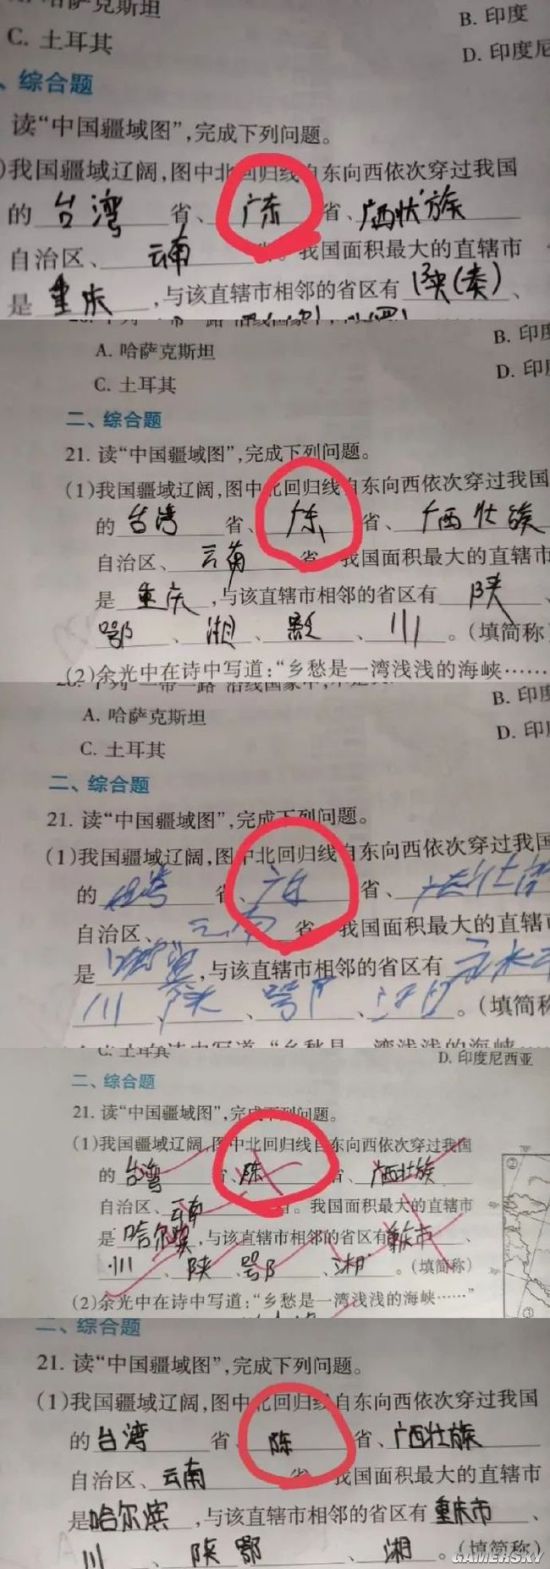 A. 哈萨克斯坦
B. 印度
C. 土耳其
D. 印度尼
、综合题
读“中国疆域图”,完成下列问题。
)我国疆域辽阔,图中北回归线自东向西依次穿过我国
的 台湾 省、 广东 省、 广西壮族
自治区、 云南 省。我国面积最大的直辖市
是 重庆 ,与该直辖市相邻的省区有 陕(秦) 、
A. 哈萨克斯坦
B. 印度
C. 土耳其
D. 印
二、综合题
21. 读“中国疆域图”,完成下列问题。
(1)我国疆域辽阔,图中北回归线自东向西依次穿过我国
的 台湾 省、 省、 广西壮族
自治区、 云南 省。我国面积最大的直辖市
是 重庆 ,与该直辖市相邻的省区有 陕 、
鄂 、 湘 、 、 川 。(填简称
(2)余光中在诗中写道:“乡愁是一湾浅浅的海峡……
A. 哈萨克斯坦
B. 印度
C. 土耳其
D. 印
二、综合题
21. 读“中国疆域图”,完成下列问题。
(1)我国疆域辽阔,图中北回归线自东向西依次穿过我国
的 省、 省、
自治区、 云南 省。我国面积最大的直辖市
是 ,与该直辖市相邻的省区有
川 、 陕 、 鄂 、 。(填简称
C. 土耳其
D. 印度尼西亚
二、综合题
21. 读“中国疆域图”,完成下列问题。
(1)我国疆域辽阔,图中北回归线自东向西依次穿过我国
的 台湾 省、 陈 省、 广西壮族
自治区、 云南 省。我国面积最大的直辖市
是 哈尔滨 ,与该直辖市相邻的省区有 重庆市 、
川 、 陕 、 鄂 、 湘 。(填简称)
(2)余光中在诗中写道:“乡愁是一湾浅浅的海峡……”
二、综合题
21. 读“中国疆域图”,完成下列问题。
(1)我国疆域辽阔,图中北回归线自东向西依次穿过我国
的 台湾 省、 陈 省、 广西壮族
自治区、 云南 省。我国面积最大的直辖市
是 哈尔滨 ,与该直辖市相邻的省区有 重庆市 、
川 、 陕 鄂 、 湘 。(填简称)
GAMERSKY